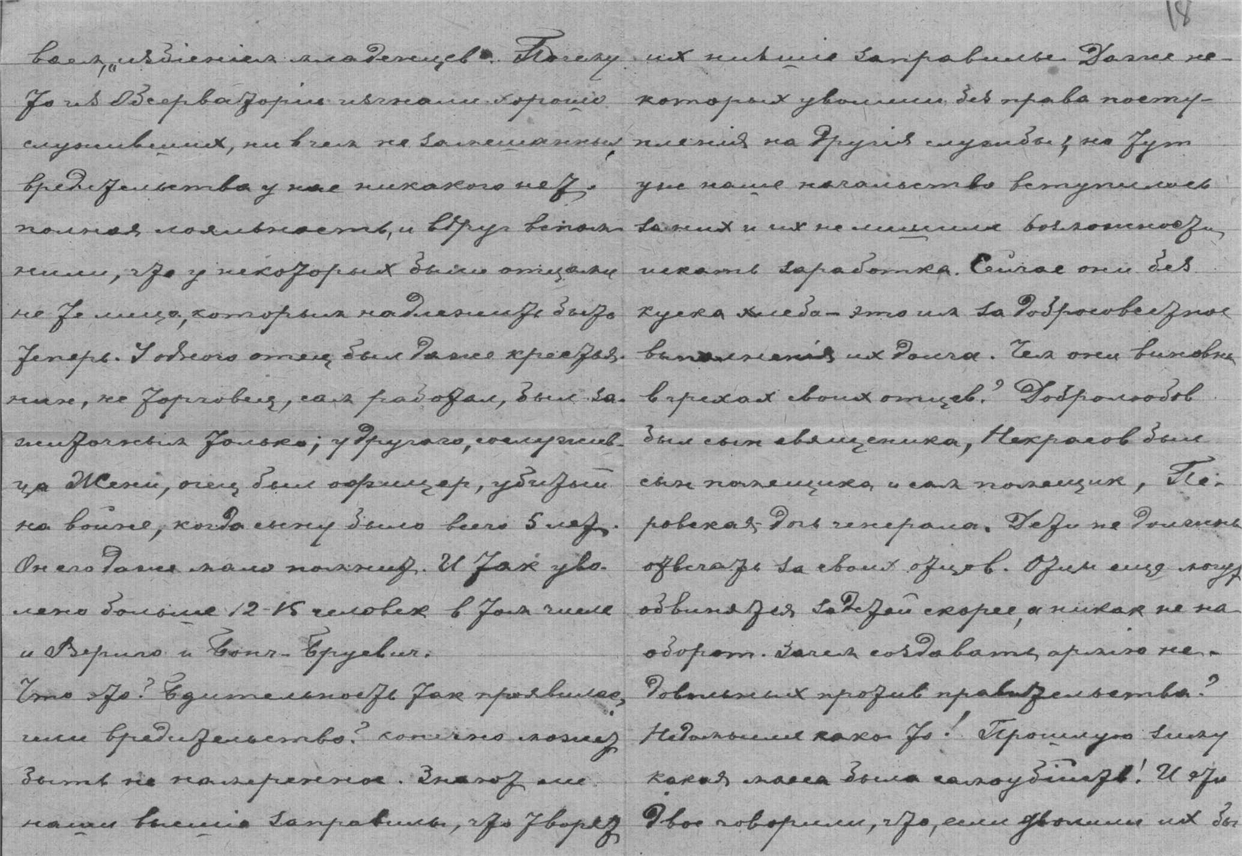 18
ваем „избіением младенцев". Почему
то из Обсерваторіи изгнали хорошо
служивших, ни в чем не замешанных,
вредительства у нас никакого нет.
полная лояльность, и вдруг вспом-
нили, что у некоторых были отцами
не те лица, которым надлежить быть
теперь. У одного отец был даже крестья-
нин, не торговец, сам работал, был за-
житочным только; у другого, сослужив-
ца Жени, отец был офицер, убитый
на войне, когда сыну было всего 5 лет.
Он его даже мало помнит. И так уво-
лено больше 12-15 человек в том числе
и Вериго и Бонч-Бруевич.
Что это? Бдительность так проявилась,
или вредительство? конечно может
быть не намеренное. Знают ли
наши высшіе заправилы, что творят
их низшіе заправилы. Даже не-
которых уволили без права посту-
пления на другія службы, но тут
уже наше начальство вступилось
за них и их не лишили возможности
искать заработка. Сейчас они без
куска хлеба - это им за добросовестное
выполненія их долга. Чем они виновны
в грехах своих отцев? Добролюбов
был сын священика, Некрасов был
сын помещика и сам помещик, Пе-
ровская дочь генерала. Дети не должны
отвечать за своих отцев. Отцы еще могут
обвинятся за детей скорее, а никак не на-
оборот. Зачем создавать армію не-
довольных против правительства?
Недомысліе какое то! Прошлую зиму
какая масса была самоубійств! И эти
двое говорили, что, если уволили их бы